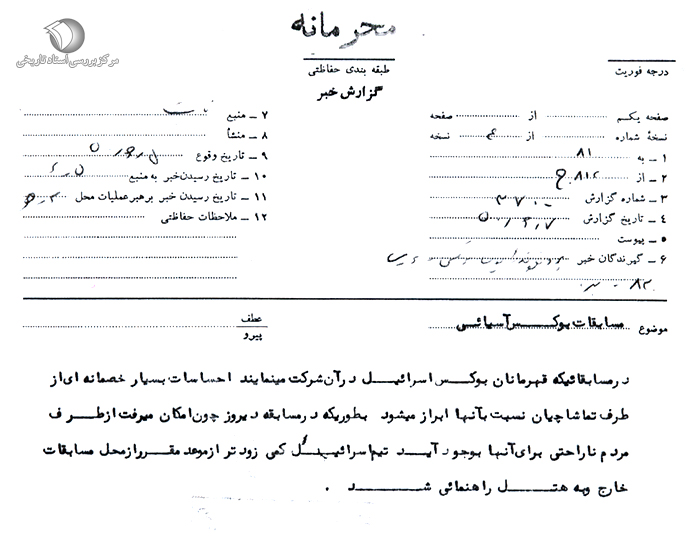 محرمانه
مرکز بررسی اسناد تاریخی
طبقه بندی حفاظتی
گزارش خبر
درجه فوریت
صفحه یکم از صفحه
نسخهٔ شماره از ۴ نسخه
۱ – به ۸۱
۲ – از
۳ – شماره گزارش
۴ – تاریخ گزارش
۵ – پیوست
۶ – گیرندگان خبر
۷ – منبع
۸ – منشأ
۹ – تاریخ وقوع
۱۰ – تاریخ رسیدن خبر به منبع
۱۱ – تاریخ رسیدن خبر برهبر عملیات محل
۱۲ – ملاحظات حفاظتی
موضوع مسابقات بوکس آسیائی
عطف
پیرو
درمسابقاتیکه قهرمانان بوکس اسرائیل درآن شرکت مینمایند احساسات بسیار خصمانه ای از
طرف تماشاچیان نسبت بآنها ابراز میشود بطوریکه درمسابقه دیروز چون امکان میرفت ازطرف
مردم ناراحتی برای آنها بوجود آید تیم اسرائیل کمی زودتر ازموعد مقرر ازمحل مسابقات
خارج وبه هتل راهنمائی شد .